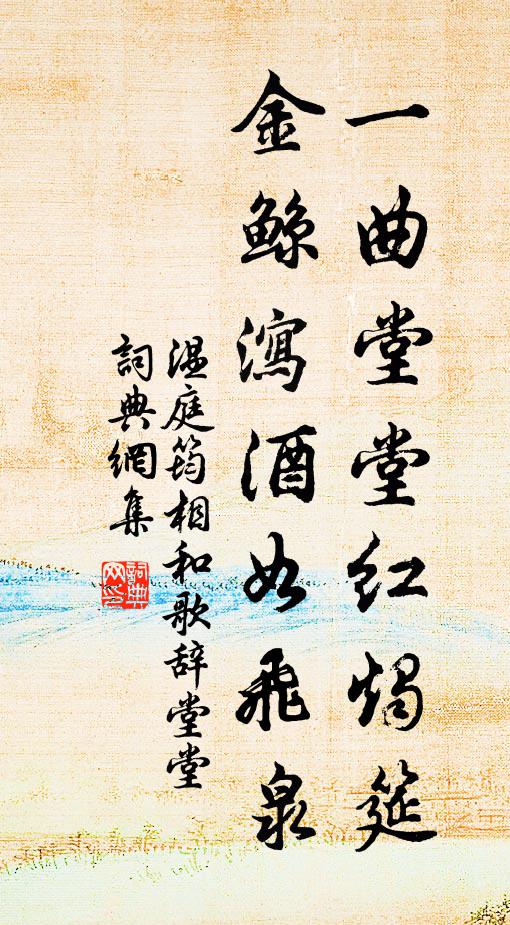 一曲堂堂红烛筵
金鲸瀉酒如飛泉
温庭筠相和歌辞堂堂
詞典網集
詞典
网印